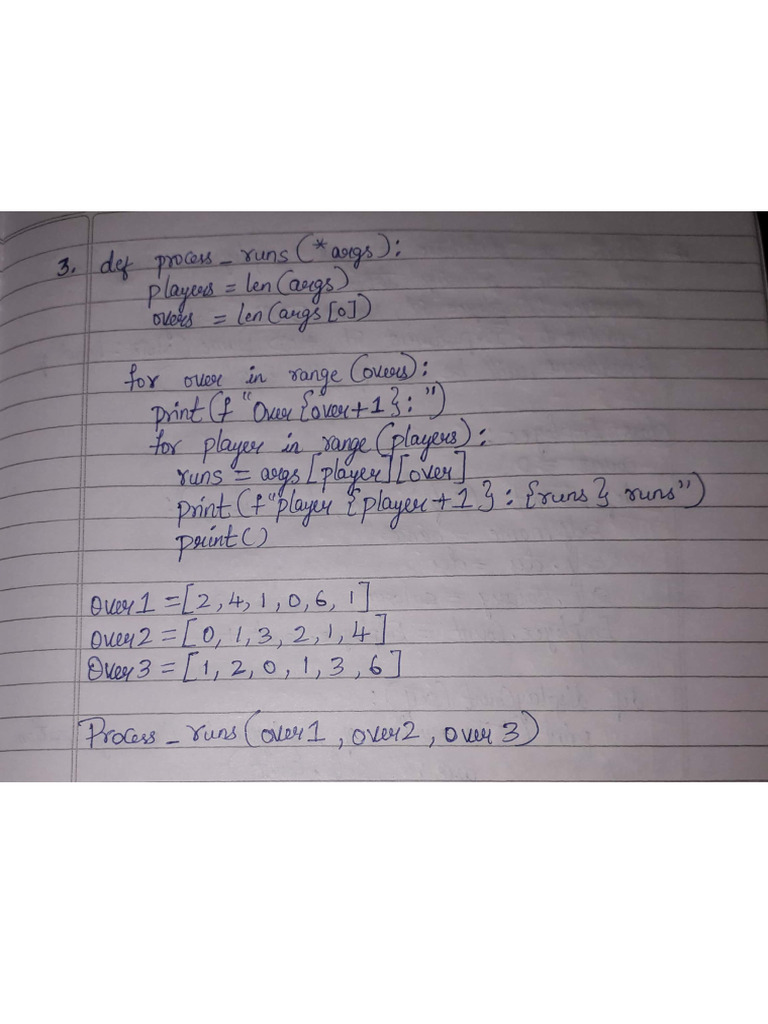 3. def process_runs(*args):
players = len(args)
overs = len(args[0])
for over in range(overs):
print(f"Over {over+1}:")
for player in range(players):
runs = args[player][over]
print(f"player {player+1}: {runs} runs")
print()
Over1 = [2, 4, 1, 0, 6, 1]
Over2 = [0, 1, 3, 2, 1, 4]
Over3 = [1, 2, 0, 1, 3, 6]
Process_runs(over1, over2, over3)